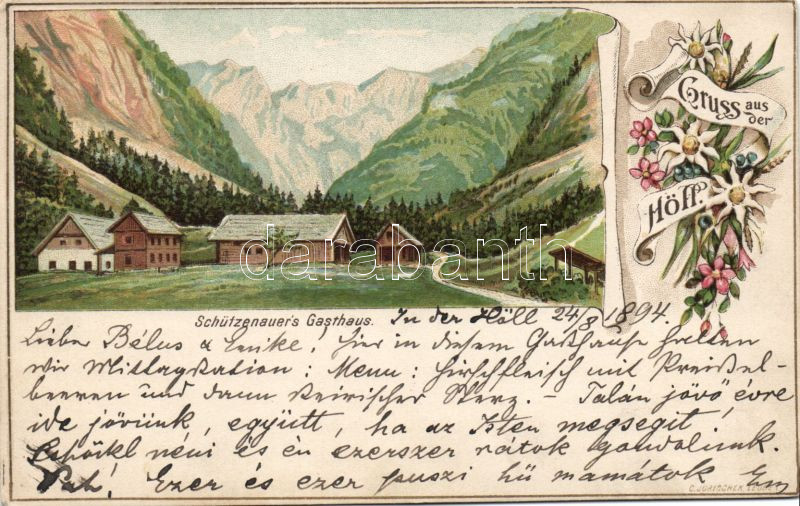 Gruss aus
der
Höll.
darabanth
Schützenauer's Gasthaus.
In der Höll 24/8 1894.
Lieber Bélus & Emike! Hier in diesem Gasthause halten
wir Mittagstation: Menu: Hirschfleisch mit Preißel-
beeren und dann steirischer Sterz. - Talán jövő évre
ide jövünk, együtt, ha az Isten megsegit,
néni és én ezerszer rátok gondolunk.
Pah! Ezer és ezer puszi hű mamátok Em